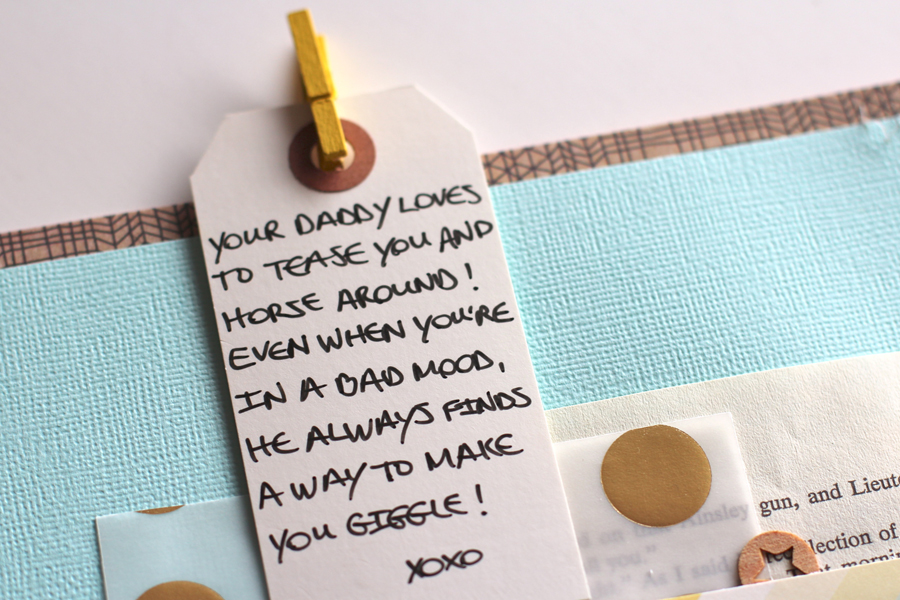 YOUR DADDY LOVES
TO TEASE YOU AND
HORSE AROUND!
EVEN WHEN YOU'RE
IN A BAD MOOD,
HE ALWAYS FINDS
A WAY TO MAKE
YOU GIGGLE!
XOXO
gun, and Lieute
on that Ainsley
lection of
you."
As I said
morning